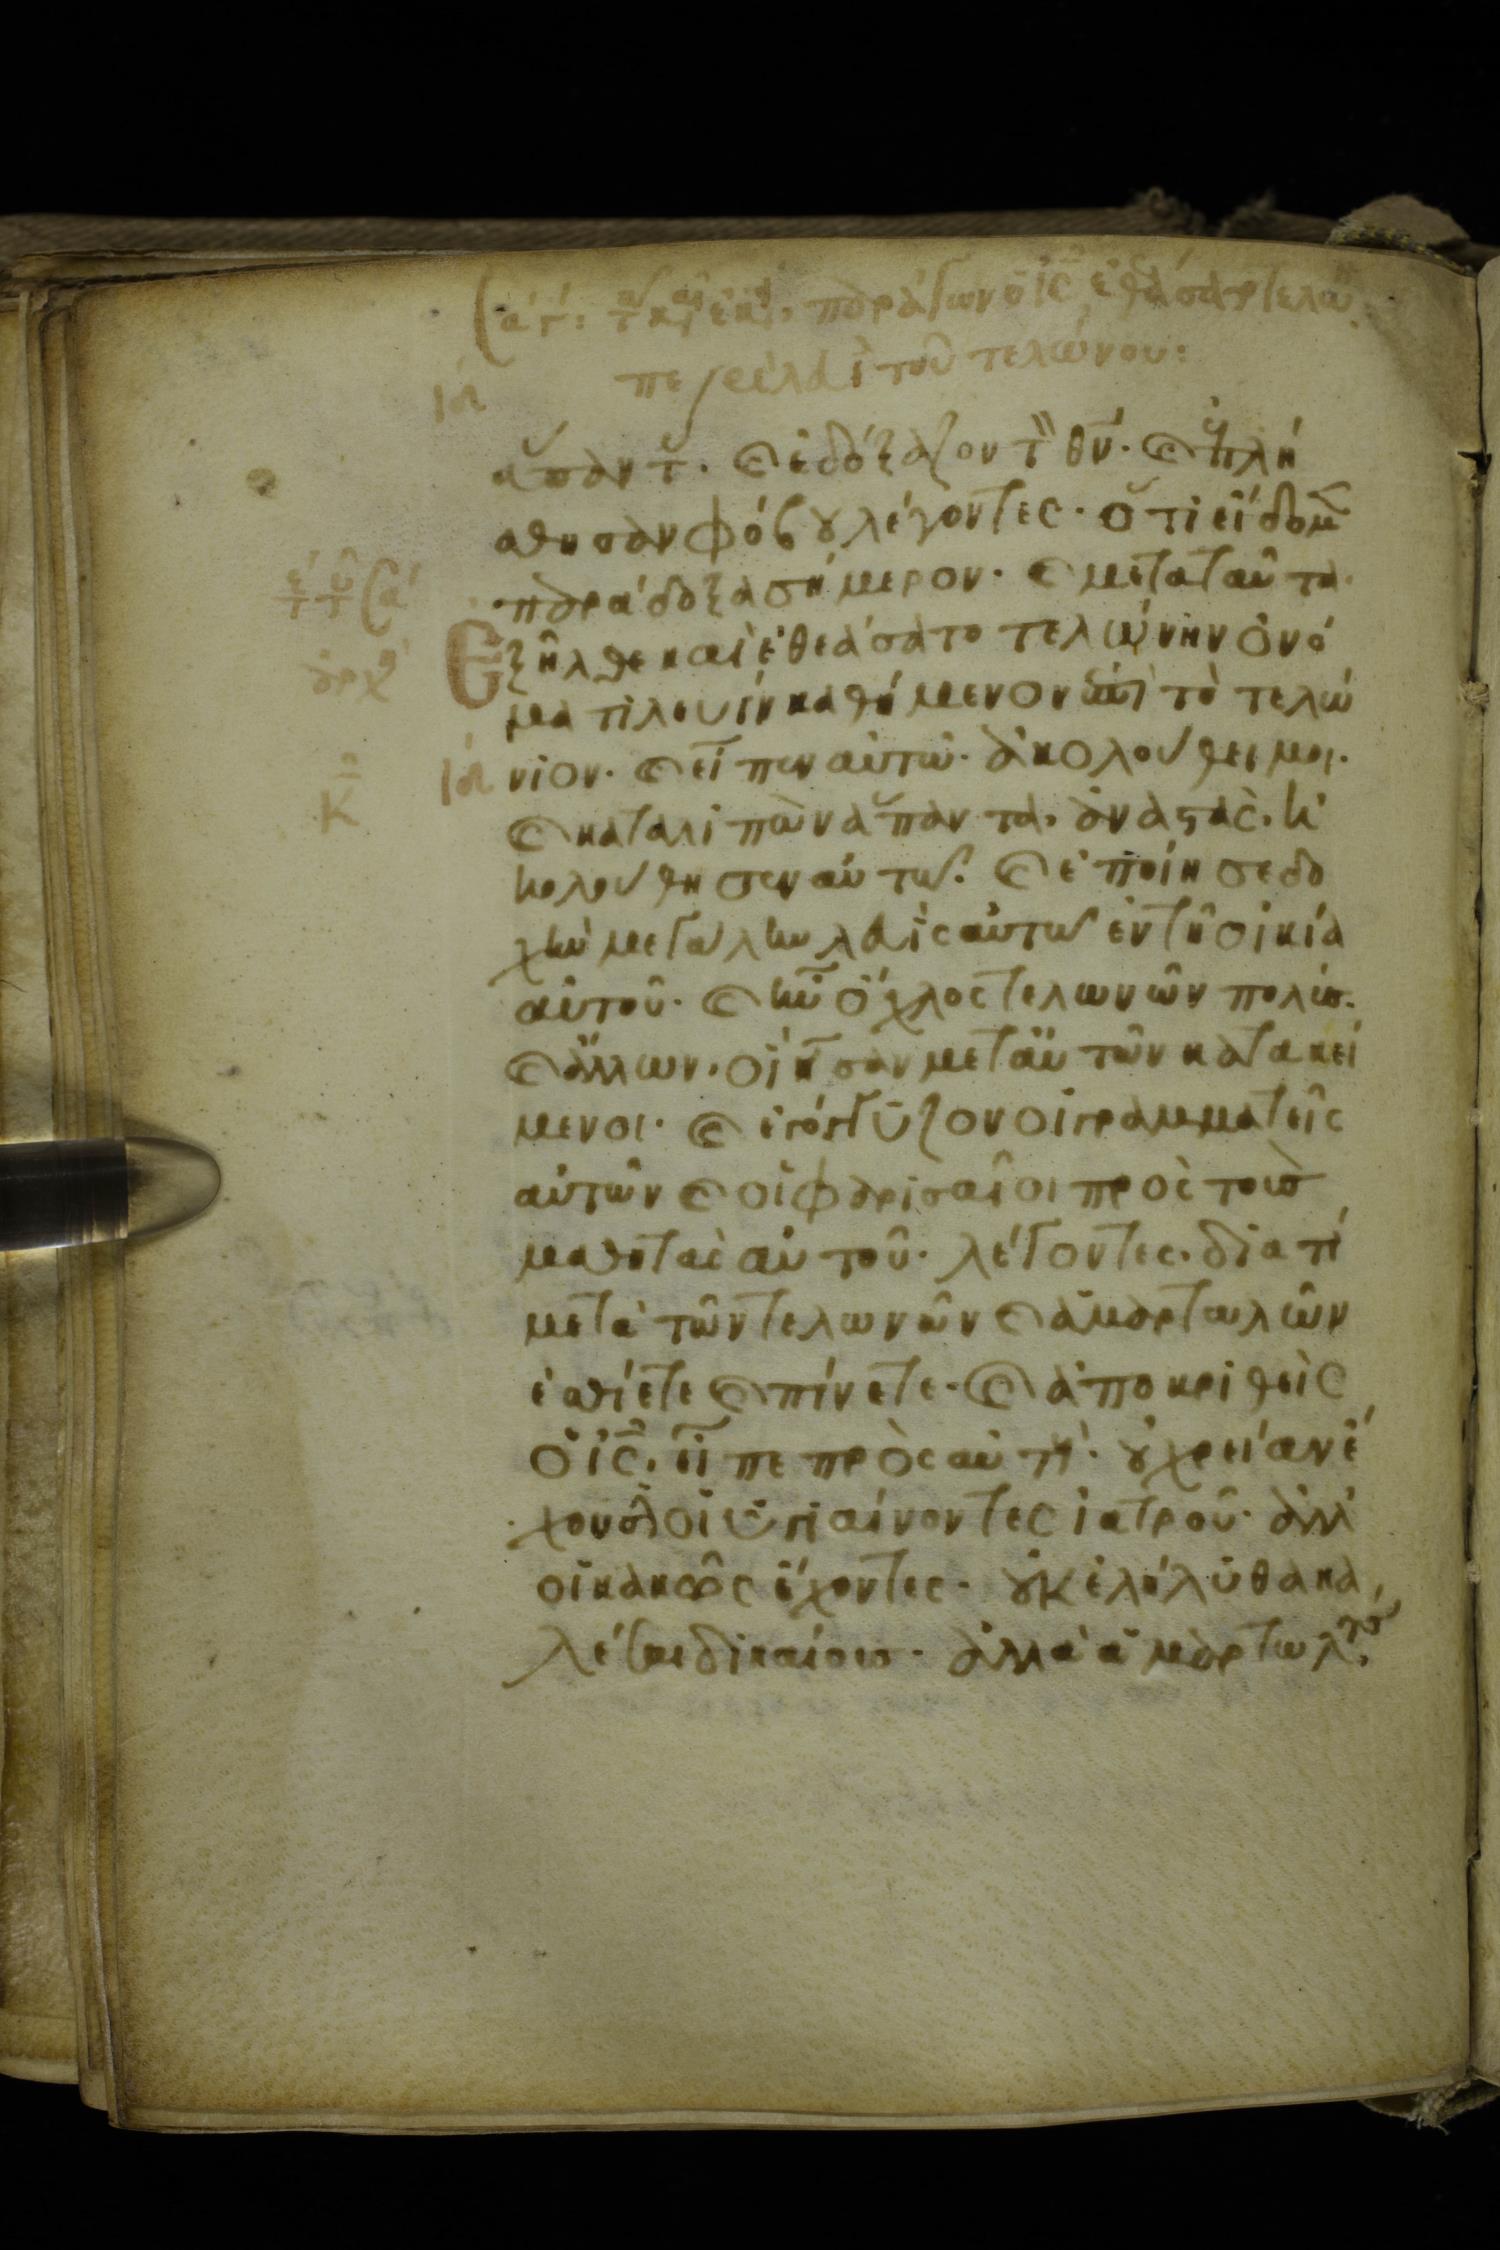 τῷ καιρῷ ἐκείνῳ, παράγων ὁ ις, ἐθεάσατο τελώ
ιδ περὶ λευὶ τοῦ τελώνου:
ἅπαντας. καὶ ἐδόξαζον τὸν θν. καὶ ἐπλή
σθησαν φόβου λέγοντες. ὅτι εἴδομεν
παράδοξα σήμερον. καὶ μετα ταῦτα
Εξῆλθε καὶ ἐθεάσατο τελώνην ὀνό
ματι λευὶν καθήμενον ἐπὶ τὸ τελώ
ιδ νιον. καὶ εἶπεν αὐτῷ. ἀκολούθει μοι.
καὶ καταλιπὼν ἅπαντα, ἀναστὰς. ἠ
κολούθησεν αὐτῷ. καὶ ἐποίησε δο
χὴν μεγάλην λευὶς αὐτῷ ἐν τῆ οἰκία
αὐτοῦ. καὶ ἦν ὄχλος τελωνῶν πολύς.
καὶ ἄλλων, οἳ ἦσαν μετ αὐτῶν κατακεί
μενοι. καὶ ἐγόγγυζον οἱ γραμματεῖς
αὐτῶν καὶ οἱ φαρισαῖοι πρὸς τοὺς
μαθητὰς αὐτοῦ. λέγοντες. διατί
μετὰ τῶν τελωνῶν καὶ ἁμαρτωλῶν
ἐσθίετε καὶ πίνετε. καὶ ἀποκριθεὶς
ὁ ις. εἶπε πρὸς αὐτούς. οὐ χρείαν ἔ
χουσιν οἱ ὑγιαίνοντες ἰατροῦ. ἀλλ
οἱ κακῶς ἔχοντες. οὐκ ἐλήλυθα κα
λέσαι δικαίους. ἀλλὰ ἁμαρτωλούς